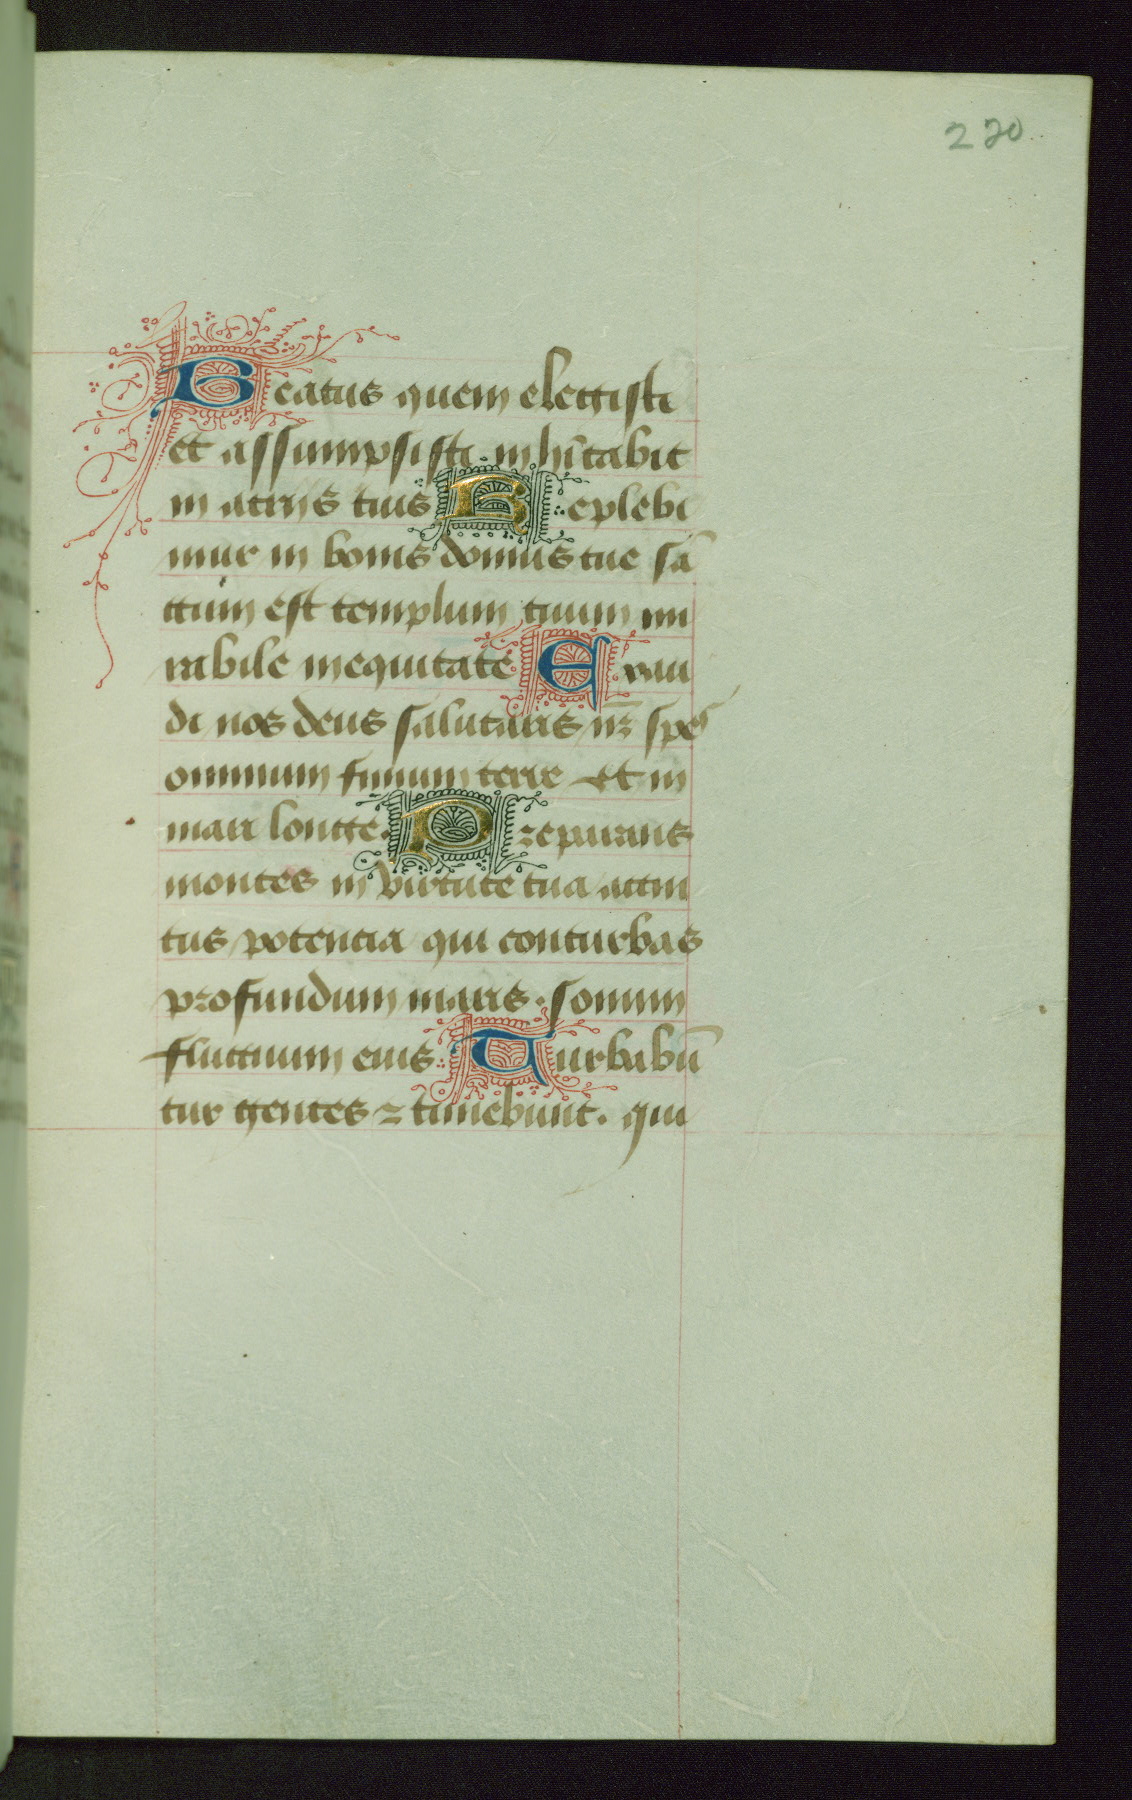 220
Beatus quem elegisti
et assumpsisti. inhītabit
in atriis tuis Replebi
mur in bonis domus tue sā
ctum est templum tuum mi
rabile inequitate Exau
di nos deus salutaris nr̄ spes
omnium finium terre et in
mari longe. Preparans
montes in virtute tua accin
tus potencia qui conturbas
profundum maris. sonum
fluctuum eius Turbabū
tur gentes ⁊ timebunt. qui